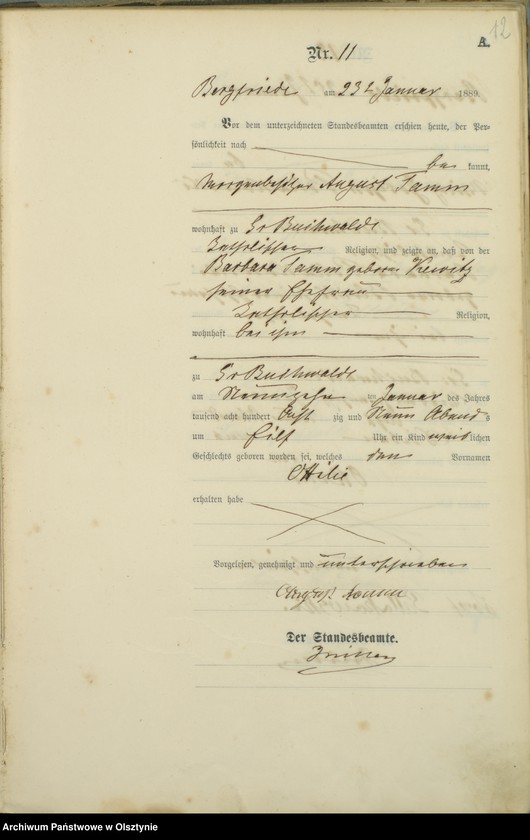 12
A.
Nr. 11
Bergfriede am 23t Januar 1889.
Vor dem unterzeichneten Standesbeamten erschien heute, der Per-
sönlichkeit nach
be kannt,
August Tamm
wohnhaft zu Gr Buchwalde
Katholischer Religion, und zeigte an, daß von der
Barbara Tamm geborne
seiner Ehefrau
Katholischer Religion,
wohnhaft bei ihm
zu Gr Buchwalde
am Neunzehn ten Januar des Jahres
tausend acht hundert Acht zig und Neun Abend
um Eilf Uhr ein Kind weiblichen
Geschlechts geboren worden sei, welches den Vornamen
Ottilie
erhalten habe
Vorgelesen, genehmigt und unterschrieben
August Tamm
Der Standesbeamte.